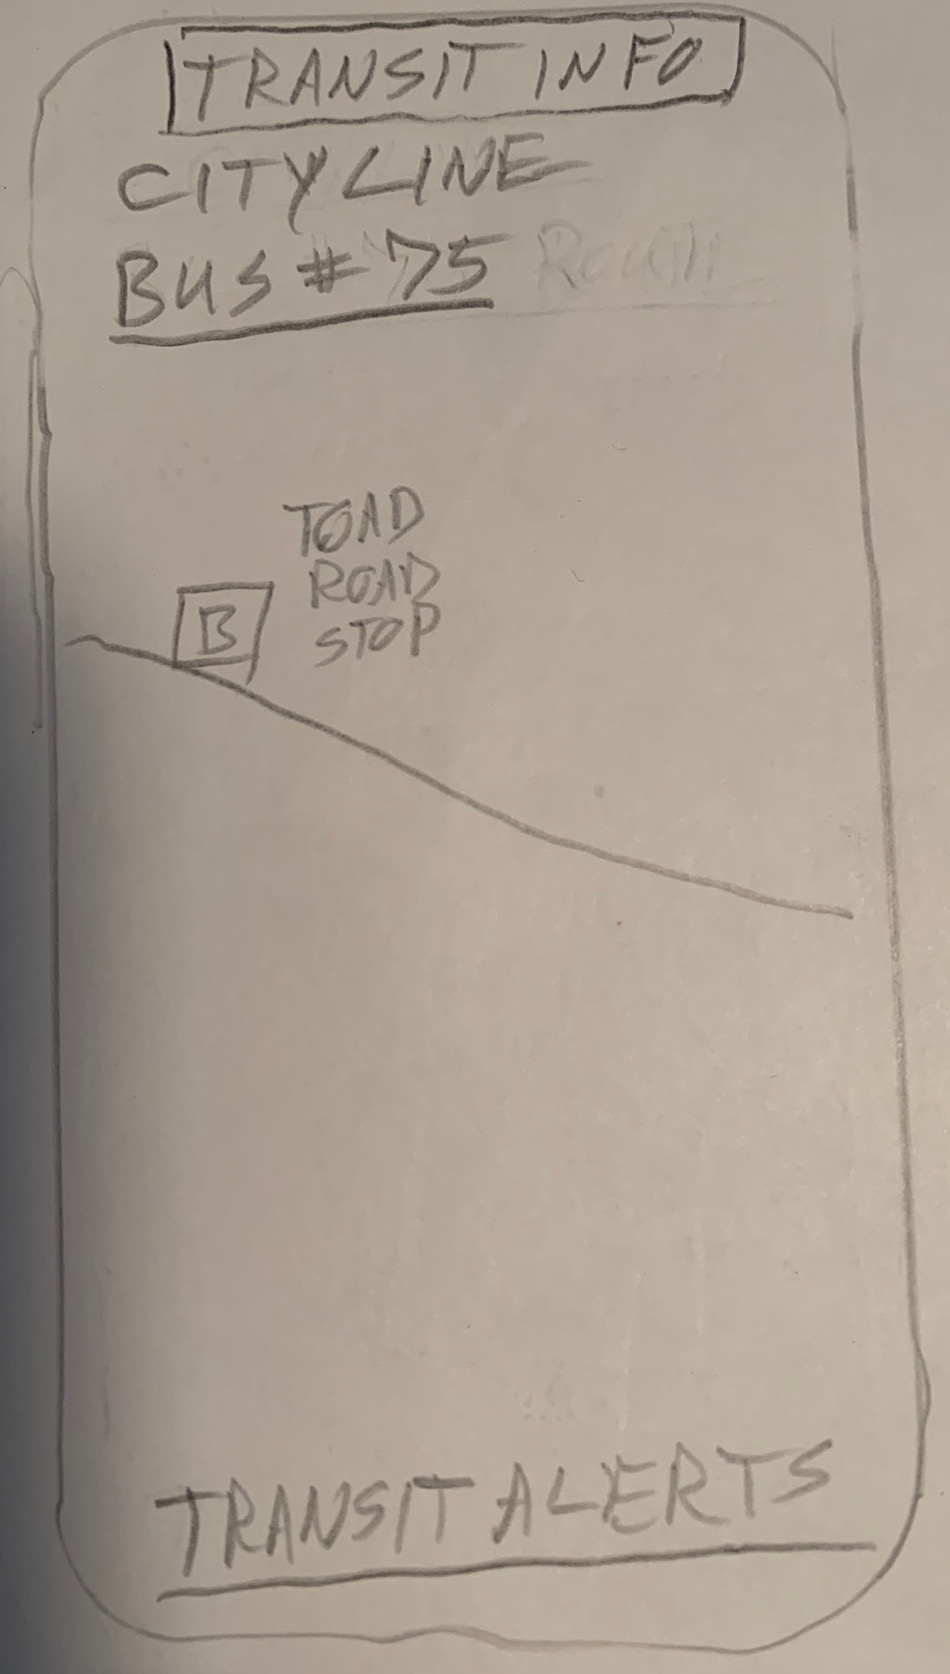 TRANSIT INFO
CITY LINE
BUS # 75
TOAD
ROAD
STOP
B
TRANSIT ALERTS